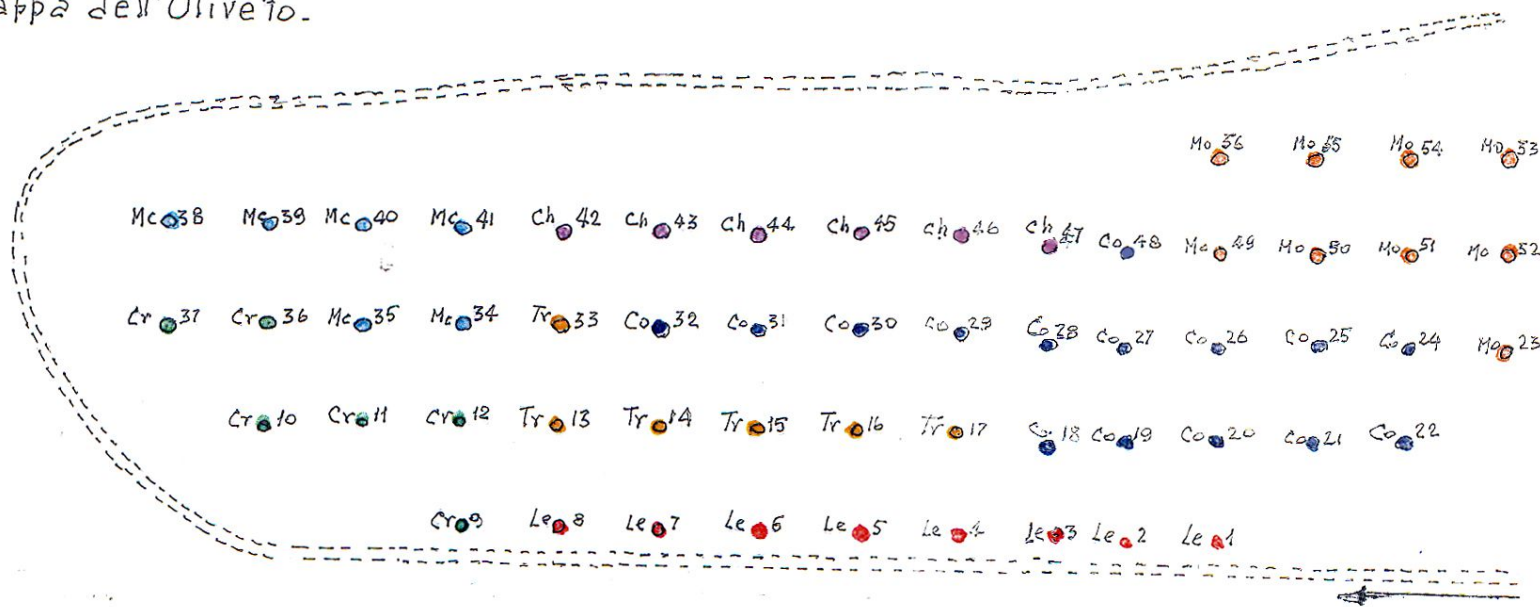 appa dell'Oliveto.
Mo 56 Mo 55 Mo 54 Mo 53
Mc 38 Mc 39 Mc 40 Mc 41 Ch 42 Ch 43 Ch 44 Ch 45 Ch 46 Ch 47 Co 48 Mo 49 Mo 50 Mo 51 Mo 52
Cr 37 Cr 36 Mc 35 Mc 34 Tr 33 Co 32 Co 31 Co 30 Co 29 Co 28 Co 27 Co 26 Co 25 Co 24 Mo 23
Cr 10 Cr 11 Cr 12 Tr 13 Tr 14 Tr 15 Tr 16 Tr 17 Co 18 Co 19 Co 20 Co 21 Co 22
Cr 9 Le 8 Le 7 Le 6 Le 5 Le 4 Le 3 Le 2 Le 1